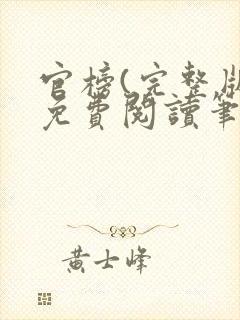 官榜(完整版
免費閱讀筆
黃士峰